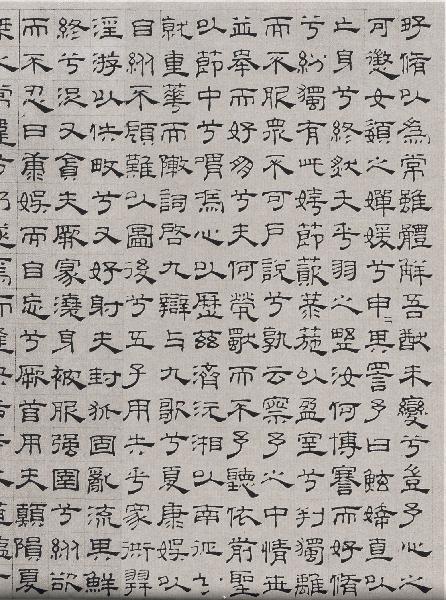 好脩以為常雖體解吾猷未變兮豈予心之
可懲女嬃之嬋媛兮申〻其詈予曰鮌婞直以
亡身兮終然夭乎羽之埜汝何博謇而好脩
兮紛獨有此姱節薋菉葹以盈室兮判獨離
而不服眾不可戶說兮孰云察予之中情世
並舉而好朋兮夫何煢獨而不予聽依前聖
以節中兮喟馮心以歷茲濟沅湘以南征兮
就重華而敶詞啓九辯與九歌兮夏康娛以
自縱不顧難以圖後兮五子用失乎家衖羿
淫游以佚畋兮又好射夫封狐固亂流其鮮
終兮浞又貪夫厥家澆身被服强圉兮縱欲
而不忍日康娛而自忘兮厥首用夫顛隕夏
桀之常違兮乃遂焉而逢